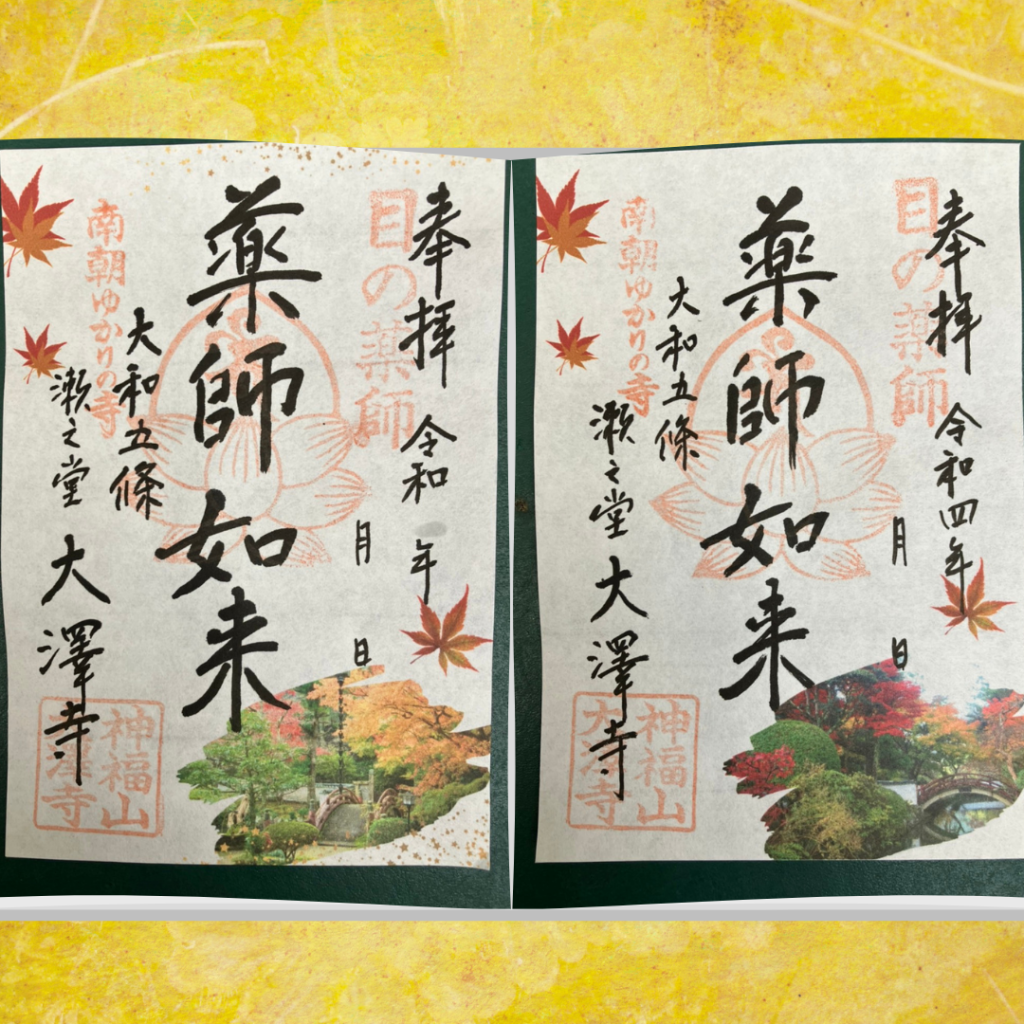 奉拝
令和 年
月 日
目の薬師
薬師如来
大和五條
瀬之堂 大澤寺
南朝ゆかりの寺
神福山
大澤寺
奉拝
令和四年
月 日
目の薬師
薬師如来
大和五條
瀬之堂 大澤寺
南朝ゆかりの寺
神福山
大澤寺